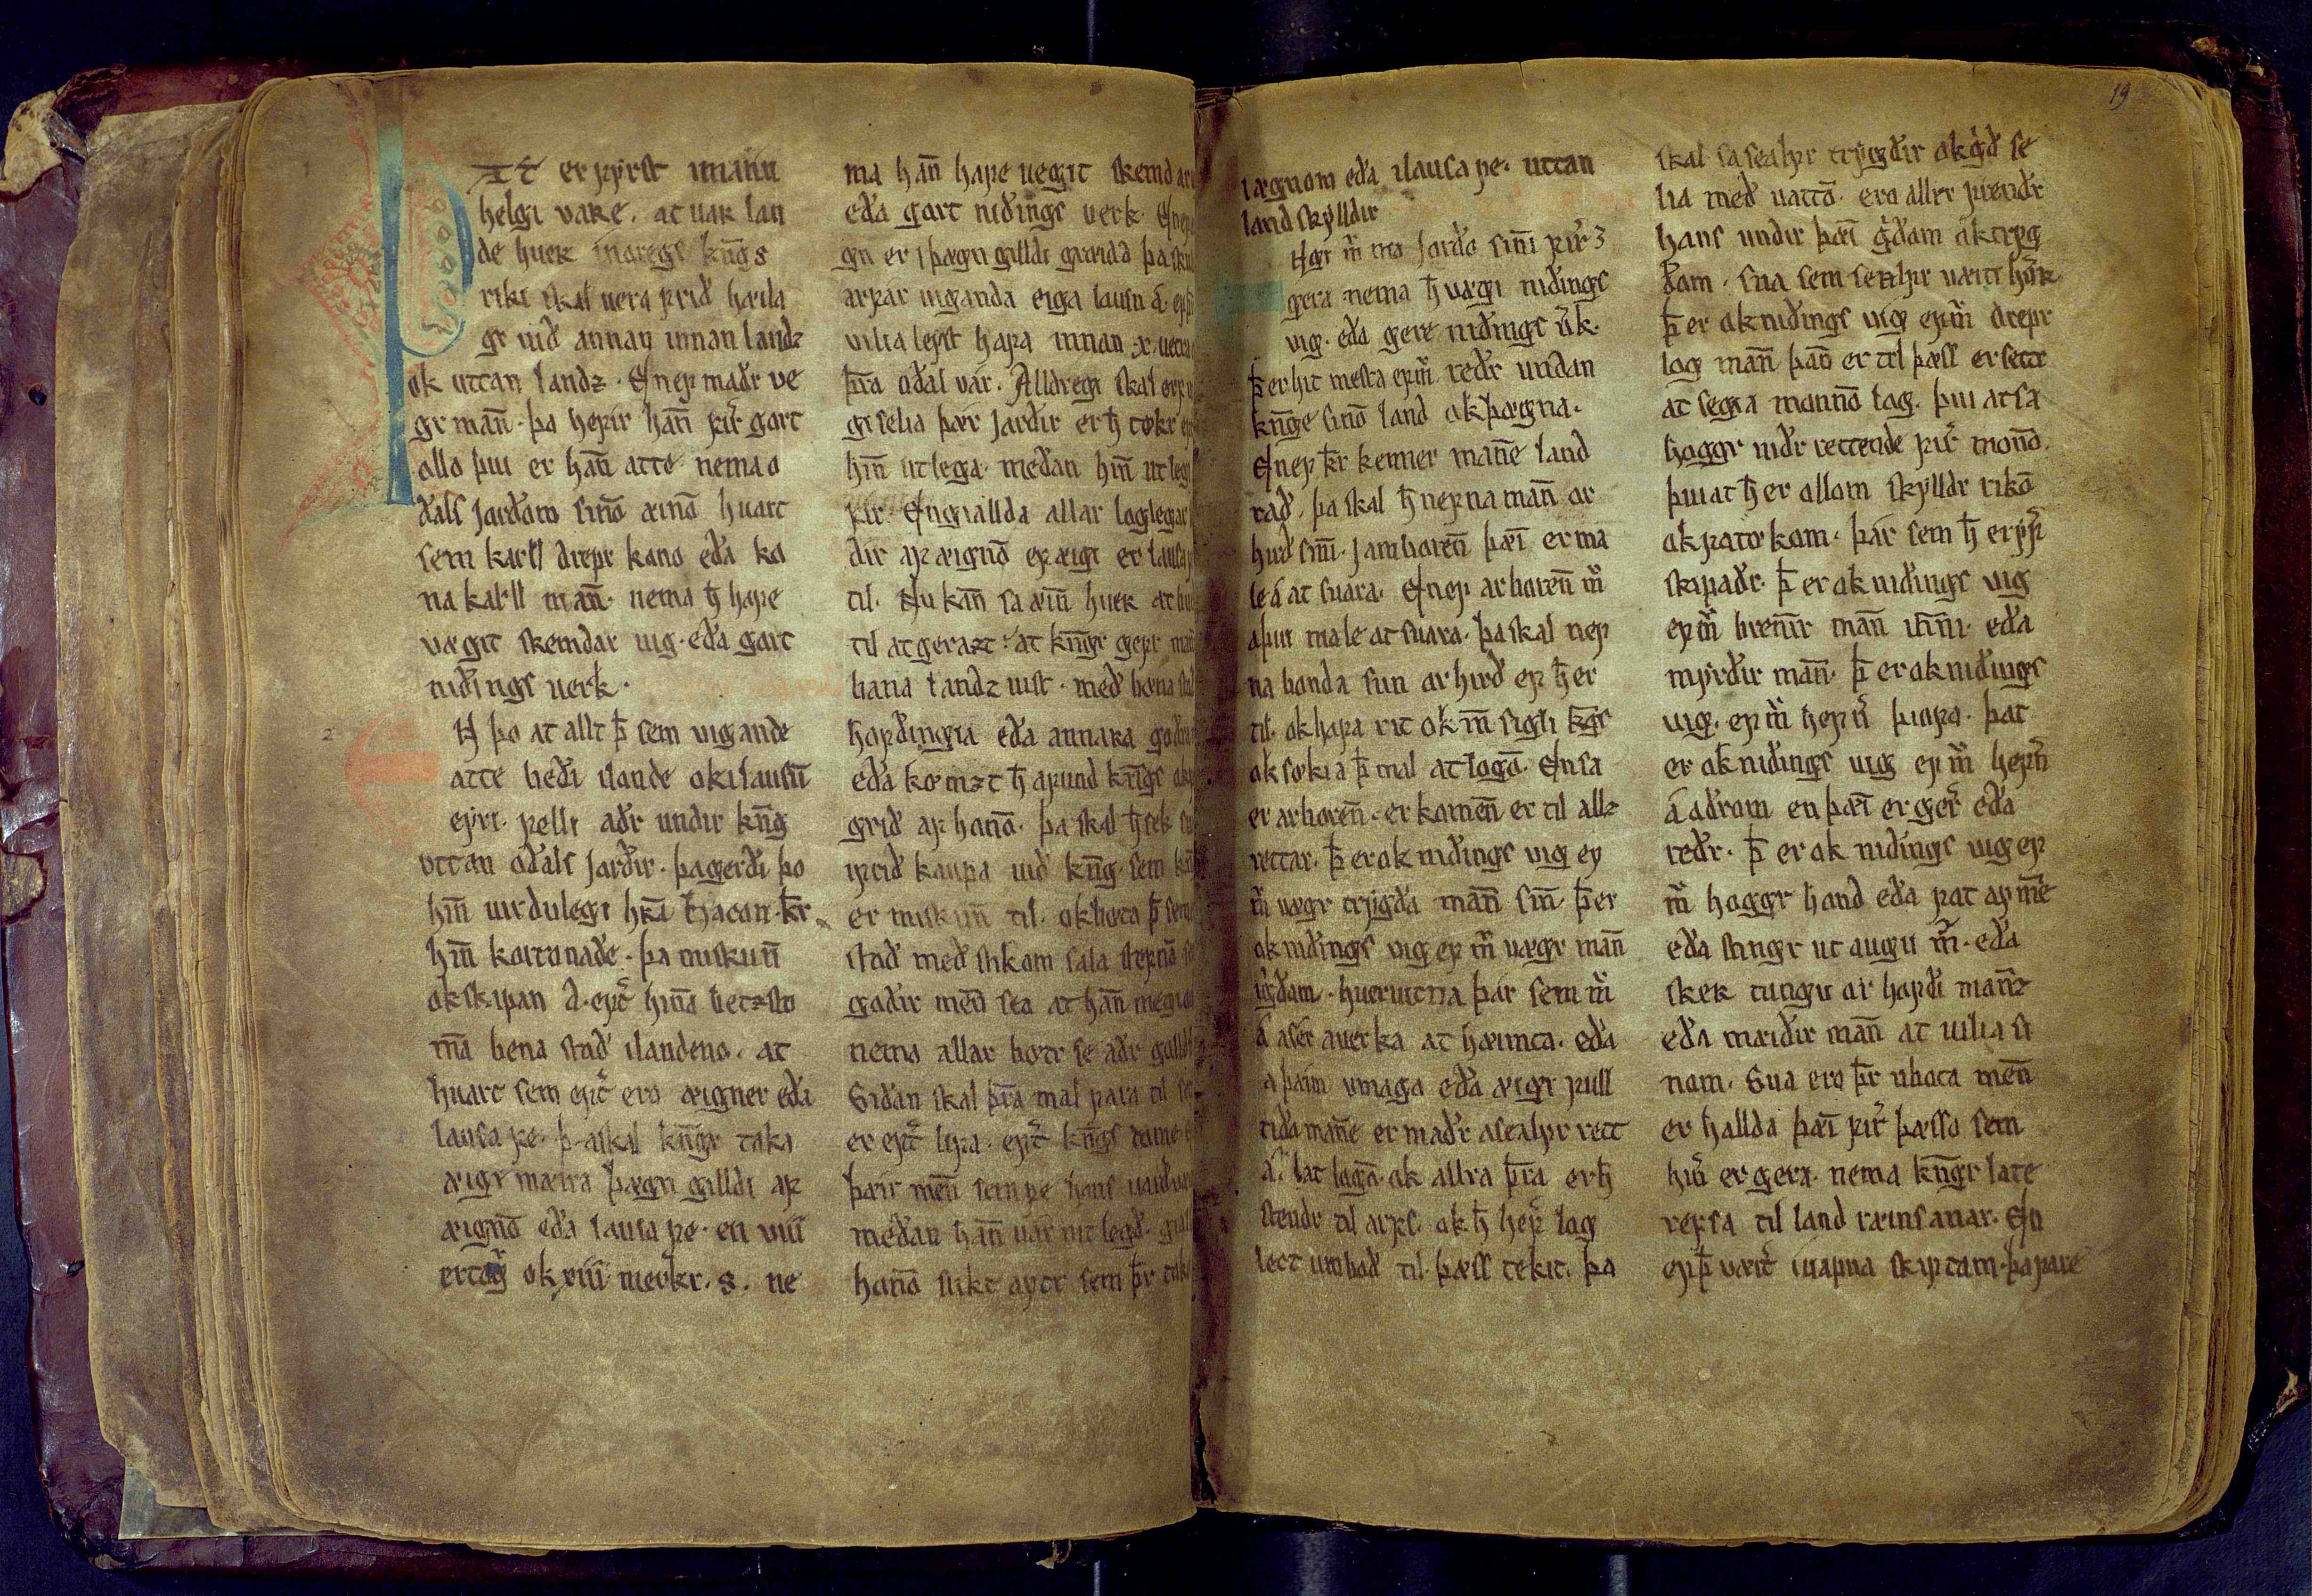 Þ
at er fyrst imann
helgi vare. at uar lan
de huer inoregs kn̅gs
riki skal uera frid hæila
gr uid annan innan landz
ok uttan landz. En ef madr ve
gr man̅. þa hefir han̅ firͥ gort
ollo þui er han̅ atte nema o
dals jordom sino̅ æino̅ huart
sem karll drepr kono eda ko
na karll man̅. nema h̅ hafe
vægit skemdar uig. eda gort
nidings uerk.
2
En þo at allt þ̅ sem uigande
atte bedi ilande ok ilausu̅
eyri. felli adr undir kn̅g
vttan odals jardir. þa gerdi þo
hin̅ uirdulegi hr̅a h̅ Hacon kr̅
hin̅ korunade. þa miskun̅
ok skipan a. eptͥ hin̅a betzsto
m̅a bena stad ilandeno. at
huart sem eptͥ ero æigner eda
lausa fe. þ a skal kn̅gr taka
æigi mæira þægn gilldi af
æigno̅ eda lausa fe. en viii
ertog̅ ok xiii merkr. s. ne
ma han̅ hafe uegit skemdar
eda gort nidings uerk. En ef
gn er i þægn gilldi græidd þa sku
arfar uiganda eiga lausn á. ef þ
vilia leyst hafa innan
þr̅a odal var. Alldregi skal erf
gi selia þær jardir er h̅ tokr
hin̅ utlega. medan hin̅ utlegi
En gialldа allar loglegar
dir af æigno̅ ef æigi er lausaf
til. Nu kan̅ sa æin̅ huer at bu
til at gerazt. at kn̅gr gefr man
bana landz uist. med bæna stad
hofdingia eda annara godra
eda komzt h̅ a fund kn̅gs ok
grid af hano̅. þa skal h̅ sek
i frid kaupa uid kn̅g. sem
er miskun̅ til. ok bæta þ̅ sem
stad med slikom sala stefno̅
godir men̅ sea at han̅ megi
nema allar bøtr se adr golld
Sidan skal þr̅a mal fara til
er eptͥ lifa. eptͥ kn̅gs dome
þæir men̅ sem fe hans uardue
medan han̅ uar ut legd. giall
hano̅ slikt aptr sem þr̅ toku
19
iægnom eda ilausa fe. uttan
land skylldir
Engi m̅ ma jordo sin̅i firͥ
gera nema h̅ vægi nidings
vig. eda gere nidings u̅k.
þ̅ er hit mesta ef m̅ rædr undan
kn̅ge sino̅ land ok þægna.
En ef kr̅ kenner man̅e land
rad. þa skal h̅ nefna man̅ or
hird sin̅i. jamboren̅ þæi̅ er ma
le á at suara. En ef arboren̅ m̅
a þui male at suara. þa skal nef
na bonda sun or hird ef h̅ er
til. ok hafa rit ok m̅ sigli kg̅s
ok søkia þ̅ mal at logo̅. En sa
er arboren̅. er komen̅ er til allz
rettar. þ̅ er ok nidings uig ef
m̅ uægr trygda man̅ sin̅. þ̅ er
ok nidings uig ef m̅ uægr man̅
ig̅dom. hueruitna þar sem m̅
á a ser auerka at hæimta. eda
a þæim vmaga eda æigi full
tida man̅e er madr a sealfr rett
á. lat logo̅. ok allra þr̅a er h̅
stendr til arfs. ok h̅ hefr̅ log
lect umbod til þæss tekit. þa
skal sa sealfr trygdir ok g̅d se
lia med uatto̅. ero aller frendr
hans undir þæi̅ g̅dom ok tryg
dom. sua sem sealfr væiti ho̅r
þ̅ er ok nidings uig ef m̅ drepr
log man̅ þan̅ er til þæss er settr
at segia monno̅ log. þui at sa
hoggr nidr rettende firͥ mono̅.
þui at h̅ er ollom skylldr riko̅
ok fatøkom. þar sem h̅ er yfͥ
skipadr. þ̅ er ok nidings uig
ef m̅ bren̅ir man̅ in̅i. eda
myrdir man̅. þ̅ er ok nidings
uig. ef m̅ hefn̅ þiofo. þat
er ok nidings uig ef m̅ hefn̅
á adrom en þæi̅ er ger̅ eda
redr. þ̅ er ok nidings uig ef
m̅ hoggr hond eda fot af m̅e
eda stingr ut augu m̅. eda
sker tungu or hofdi man̅z
eda mæidir man̅ at uilia si
nom. Sua ero þr̅ ubota men̅
er hallda þæi̅ firͥ þæsso sem
hin̅ er gera. nema kn̅gr late
refsa til land ræinsanar. En
ef þ̅ værͥ iuapna skiptom. þa fare